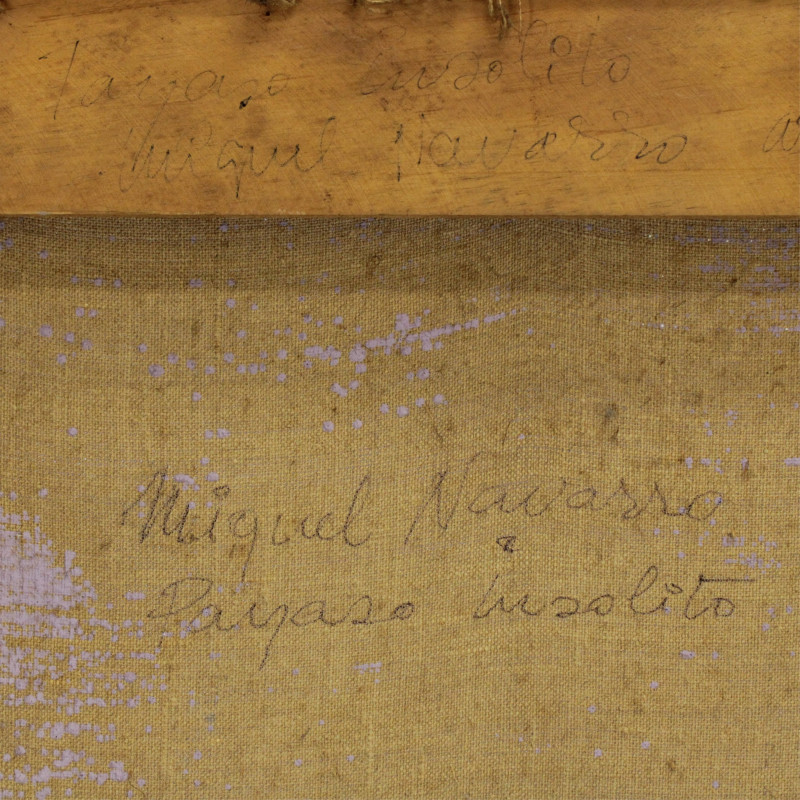 Payaso insolito
Miquel Navarro
Miquel Navarro
Payaso insolito